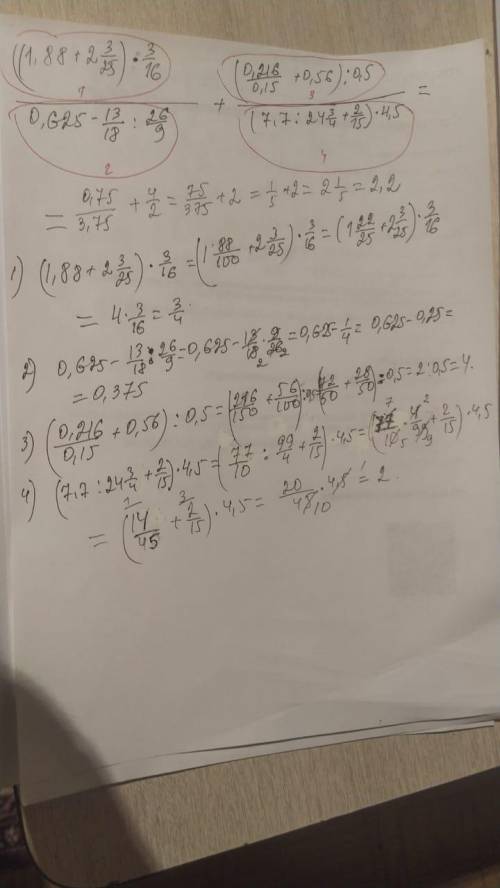 ((1,88 + 2 3/25) · 3/16) / (0,625 − 13/18 : 26/9) + ((0,216/0,15 + 0,56) : 0,5) / ((7,7 : 24 3/4 + 2/15) · 4,5) =
1 3
2 4
= 0,75/3,75 + 4/2 = 75/375 + 2 = 1/5 + 2 = 2 1/5 = 2,2
1) (1,88 + 2 3/25) · 3/16 = (1 88/100 + 2 3/25) · 3/16 = (1 22/25 + 2 3/25) · 3/16
= 4 · 3/16 = 3/4
2) 0,625 − 13/18 : 26/9 = 0,625 − 13/18 · 9/26 = 0,625 − 1/4 = 0,625 − 0,25 =
= 0,375
3) (0,216/0,15 + 0,56) : 0,5 = (216/150 + 56/100) : 0,5 = (72/50 + 28/50) : 0,5 = 2 : 0,5 = 4.
4) (7,7 : 24 3/4 + 2/15) · 4,5 = (77/10 : 99/4 + 2/15) · 4,5 = (77/10 · 4/99 + 2/15) · 4,5
= (14/45 + 2/15) · 4,5 = 20/45 · 4,5 = 2.